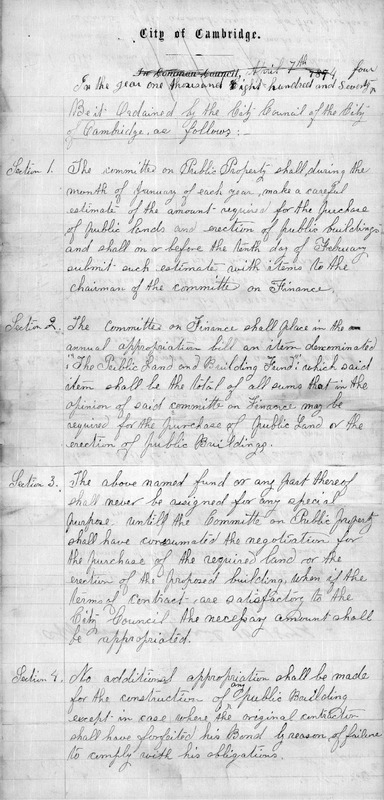 City of Cambridge.
In Common Council, April 7th 1874,
In the year one thousand Eight hundred and Seventy four
Be it Ordained by the City Council of the City
of Cambridge, as follows:—
Section 1. The committee on Public Property shall, during the
month of January of each year, make a careful
estimate of the amount required for the purchase
of public lands and erection of public buildings
and shall on or before the tenth day of February
submit such estimate with items to the
chairman of the committee on Finance.
Section 2. The Committee on Finance shall place in the
annual appropriation bill an item denominated
"The Public Land and Building Fund" which said
item shall be the total of all sums that in the
opinion of said committe on Finance may be
required for the purchase of public Land or the
erection of public Buildings.
Section 3. The above named fund or any part thereof
shall never be assigned for any special
purpose untill the Committe on Public property
shall have consumated the negotiation for
the purchase of the required land or the
erection of the proposed building, when if the
terms of contract are satisfactory to the
City Council the necessary amount shall
be appropriated.
Section 4. No additional appropriation shall be made
for the construction of any public Building
except in case where the original contractor
shall have forfeited his Bond by reason of failure
to comply with his obligations.